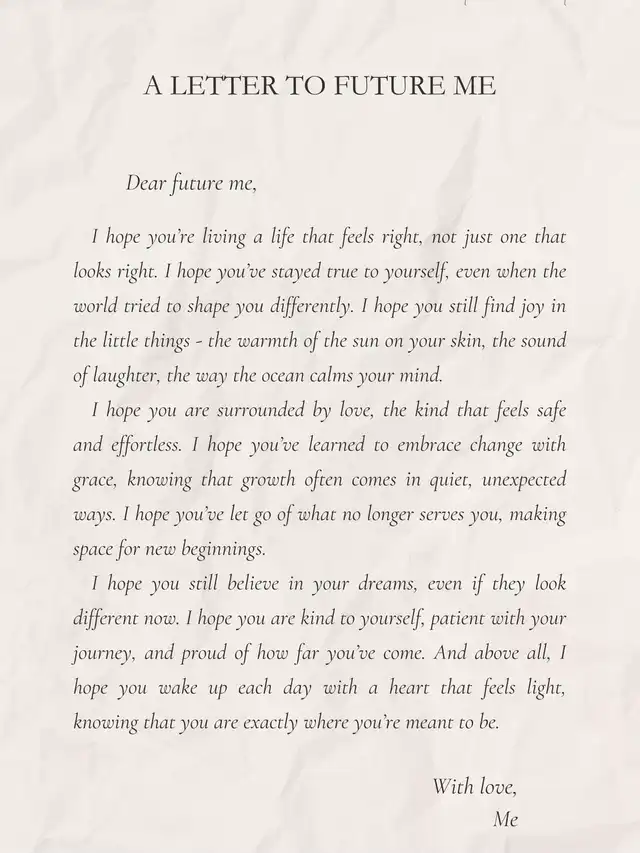 A LETTER TO FUTURE ME
Dear future me,
I hope you're living a life that feels right, not just one that
looks right. I hope you've stayed true to yourself, even when the
world tried to shape you differently. I hope you still find joy in
the little things - the warmth of the sun on your skin, the sound
of laughter, the way the ocean calms your mind.
I hope you are surrounded by love, the kind that feels safe
and effortless. I hope you've learned to embrace change with
grace, knowing that growth often comes in quiet, unexpected
ways. I hope you've let go of what no longer serves you, making
space for new beginnings.
I hope you still believe in your dreams, even if they look
different now. I hope you are kind to yourself, patient with your
journey, and proud of how far you've come. And above all, I
hope you wake up each day with a heart that feels light,
knowing that you are exactly where you're meant to be.
With love,
Me